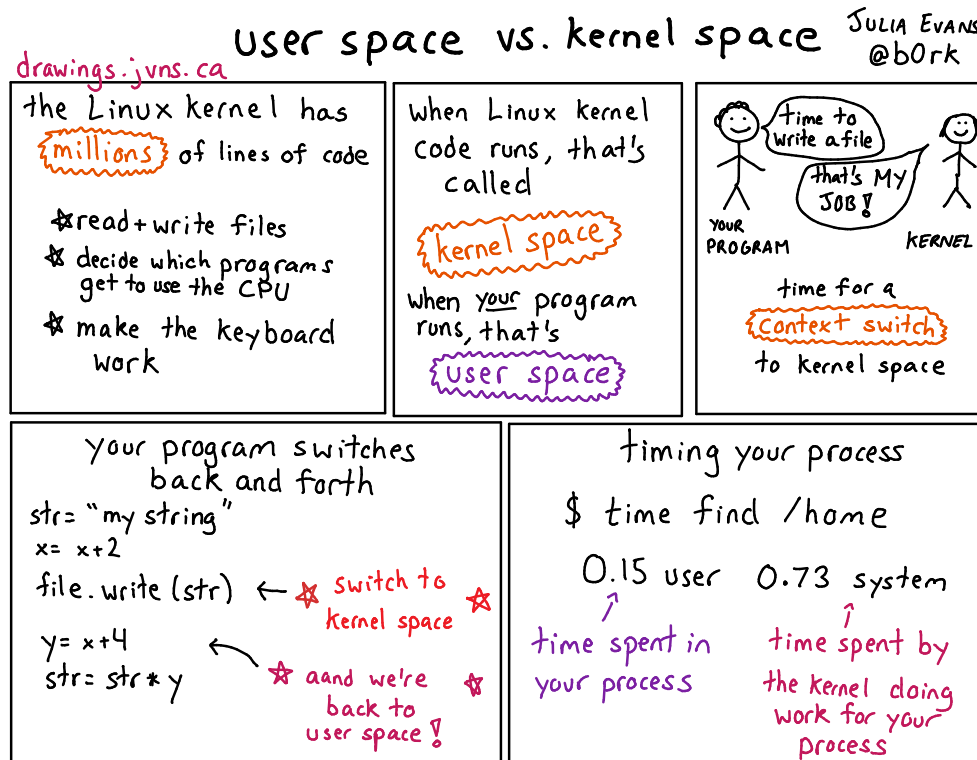 user space vs. kernel space
JULIA EVANS
@b0rk
drawings.jvns.ca
the Linux kernel has
millions of lines of code
read + write files
decide which programs
get to use the CPU
make the keyboard
work
when Linux kernel
code runs, that's
called
kernel space
when your program
runs, that's
user space
time to
write a file
that's MY
JOB!
YOUR
PROGRAM
KERNEL
time for a
context switch
to kernel space
your program switches
back and forth
str= "my string"
x= x+2
file.write(str)
switch to
kernel space
y= x+4
str= str * y
aand we're
back to
user space!
timing your process
$ time find /home
0.15 user 0.73 system
time spent in
your process
time spent by
the kernel doing
work for your
process